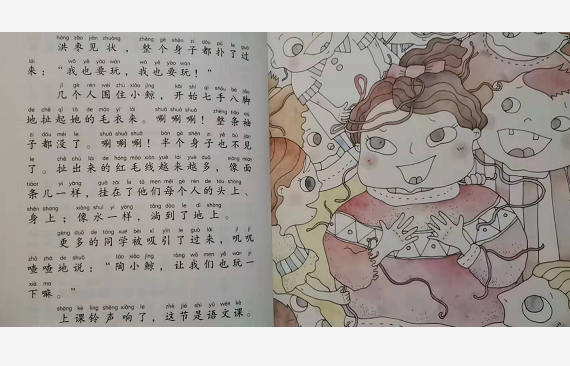 hóng zǎo jiàn zhuàng zhěng gè shēn zi dōu pū le guò
洪枣见状，整个身子都扑了过
lái wǒ yě yào wán wǒ yě yào wán
来：“我也要玩，我也要玩！”
jǐ gè rén wéi zhù xiǎo jīng kāi shǐ qī shǒu bā jiǎo
几个人围住小鲸，开始七手八脚
de chě qǐ tā de máo yī lái shuā shuā shuā zhěng xiù
地扯起她的毛衣来。唰唰唰！整条袖
zi dōu méi le shuā shuā shuā bàn gè shēn zi yě bú jiàn
子都没了。唰唰唰！半个身子也不见
le chě chū lái de hóng máo xiàn yuè lái yuè duō xiàng miàn
了。扯出来的红毛线越来越多，像面
tiáor yí yàng guà zài le tā men měi gè rén de tóu shàng
条儿一样，挂在了他们每个人的头上、
shēn shang xiàng shuǐ yí yàng tǎng dào le dì shàng
身上；像水一样，淌到了地上。
gèng duō de tóng xué bèi xī yǐn le guò lái jī jī
更多的同学被吸引了过来，叽叽
zhā zhā de shuō táo xiǎo jīng ràng wǒ men yě wán yi
喳喳地说：“陶小鲸，让我们也玩一
xià ma
下嘛。”
shàng kè líng shēng xiǎng le zhè jié shì yǔ wén kè
上课铃声响了，这节是语文课。